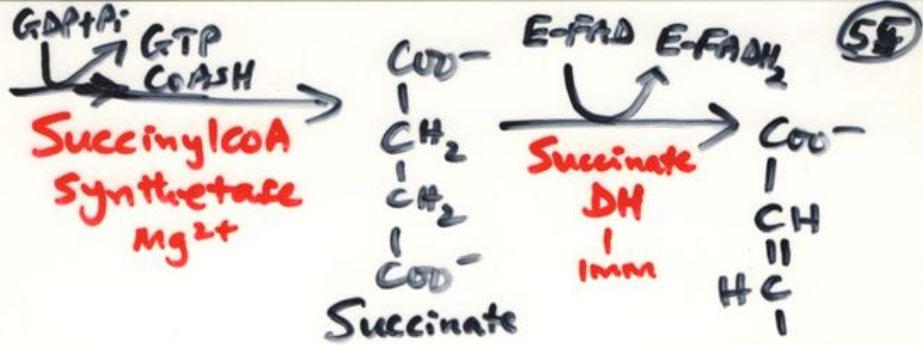 GDP+Pi
GTP
CoASH
SuccinylCoA
Synthetase
Mg²⁺
COO⁻
CH₂
CH₂
COO⁻
Succinate
E-FAD E-FADH₂
Succinate
DH
IMM
COO⁻
CH
HC